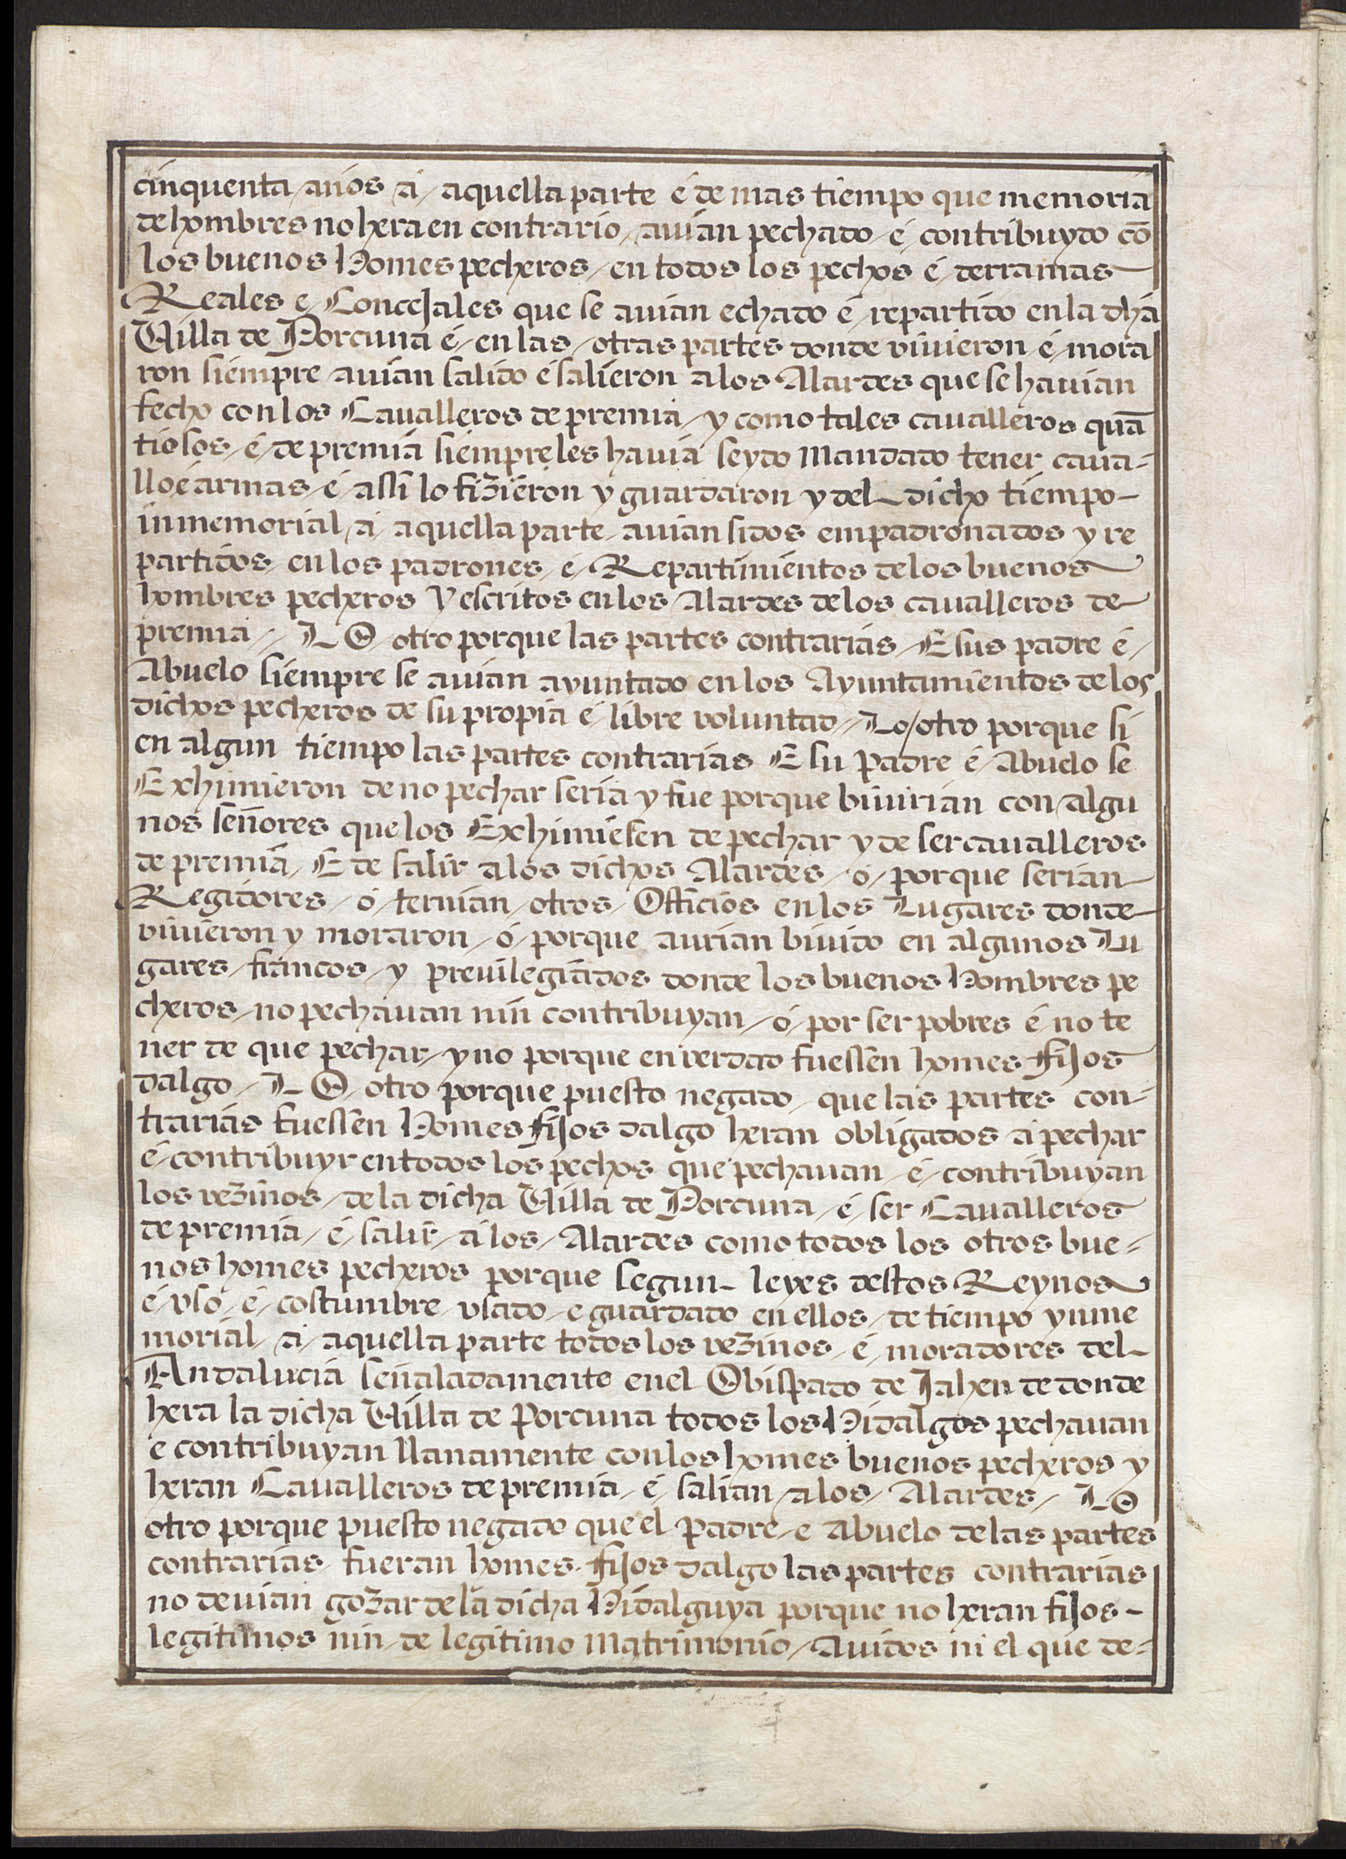 cinquenta años a aquella parte é de mas tiempo que memoria
de hombres no hera en contrario, avian pechado é contribuydo cõ
los buenos Homes pecheros, en todos los pechos é derramas
Reales e Concejales que se avian echado é repartido en la dhã
Villa de Porcuna é en las otras partes donde vivieron é mora
ron siempre avian salido é salieron a los Alardes que se havian
fecho con los Cavalleros de premia, y como tales cavalleros quã
tiosos, é de premia siempre les havia seydo Mandado tener cava-
llo é armas, é assi lo fizieron y guardaron y del dicho tiempo-
inmemorial, a aquella parte avian sidos empadronados y re
partidos en los padrones, é Repartimientos de los buenos
hombres pecheros y escritos en los Alardes de los cavalleros de
premia, LO otro porque las partes contrarias, E sus padre é
Abuelo siempre se avian ayuntado en los Ayuntamientos de los
dichos pecheros de su propia é libre voluntad, Lo otro porque si
en algun tiempo las partes contrarias E su Padre é Abuelo se
Exhimieron de no pechar seria y fue porque bivirian con algu
nos señores que los Exhimiesen de pechar y de ser cavalleros
de premia, E de salir a los dichos Alardes, ó porque serian
Regidores, ó ternian otros Officios en los Lugares donde
vivieron y moraron, ó porque avrian bivido en algunos Lu
gares francos, y previlegiados donde los buenos Hombres pe
cheros, no pechavan nin contribuyan, ó por ser pobres é no te
ner de que pechar, y no porque en verdad fuessen homes fijos
dalgo, LO otro porque puesto negado, que las partes con-
trarias fuessen Homes fijos dalgo heran obligados a pechar
é contribuyr en todos los pechos que pechavan é contribuyan
los vezinos de la dicha Villa de Porcuna, é ser Cavalleros
de premia, é salir a los Alardes como todos los otros bue-
nos homes pecheros porque segun leyes destos Reynos
é vso, é costumbre vsado, e guardado en ellos, de tiempo ynme
morial, a aquella parte todos los vezinos, é moradores del
Andalucia señaladamente en el Obispado de Jahen de donde
hera la dicha Villa de Porcuna todos los Hidalgos pechavan
e contribuyan llanamente con los homes buenos pecheros y
heran Cavalleros de premia, é salian a los Alardes, LO
otro porque puesto negado que el Padre, e Abuelo de las partes
contrarias fueran homes fijos dalgo las partes contrarias
no devian gozar de la dicha Hidalguya porque no heran fijos-
legitimos nin de legitimo Matrimonio, Avidos ni el que de-